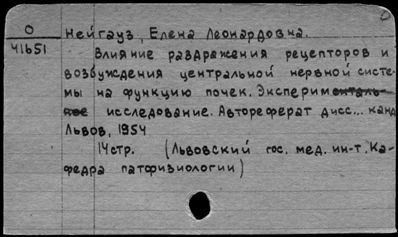 О
41651
Нейгауз, Елена Леонардовна.
Влияние раздражения рецепторов и
возбуждения центральной нервной систе-
мы на функцию почек. Эксперименталь-
ное исследование. Автореферат дисс... канд
Львов, 1954
14стр. (Львовский гос. мед. ин-т. Ка-
федра патфизиологии)